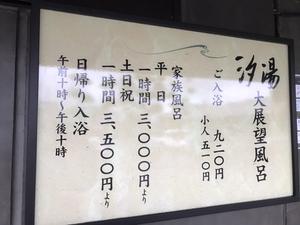 汐湯
大展望風呂
ご入浴 九二〇円
小人 五一〇円
家族風呂
平日
一時間 三、〇〇〇円より
土日祝
一時間 三、五〇〇円より
日帰り入浴
午前十時～午後十時